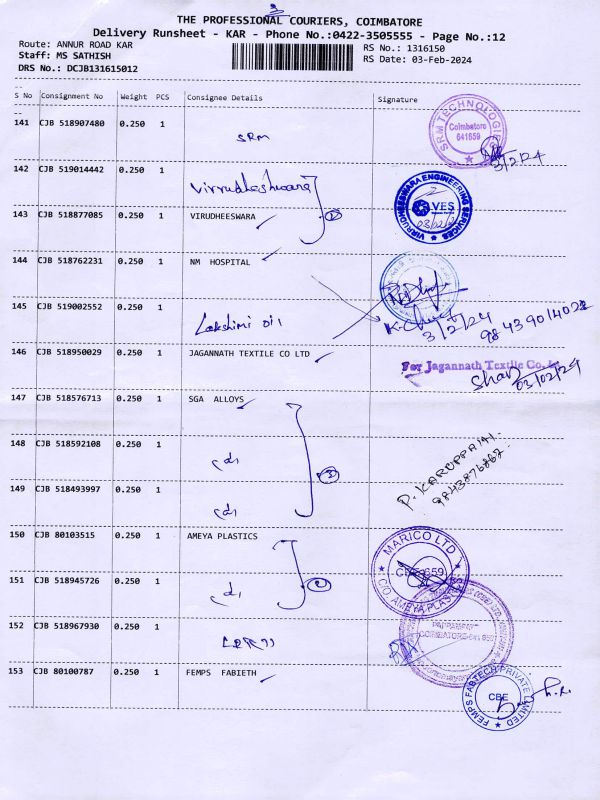 THE PROFESSIONAL COURIERS, COIMBATORE
Delivery Runsheet - KAR - Phone No.:0422-3505555 - Page No.:12
Route: ANNUR ROAD KAR
RS No.: 1316150
Staff: MS SATHISH
RS Date: 03-Feb-2024
DRS No.: DCJB131615012
S No Consignment No Weight PCS Consignee Details Signature
141 CJB 518907480 0.250 1 SRM
SRM TECHNOLOGIE
Coimbatore
641659
3/2/24
142 CJB 519014442 0.250 1
VIRRUDHEESWARA ENGINEERING SERVICES
VES
03/02/2
143 CJB 518877085 0.250 1 VIRUDHEESWARA
144 CJB 518762231 0.250 1 NM HOSPITAL
145 CJB 519002552 0.250 1 Lakshimi oil
3/2/24
98439014028
146 CJB 518950029 0.250 1 JAGANNATH TEXTILE CO LTD
For Jagannath Textile Co.
03/02/24
147 CJB 518576713 0.250 1 SGA ALLOYS
148 CJB 518592108 0.250 1
149 CJB 518493997 0.250 1
P. KARUPPAIAH.
9843876862
150 CJB 80103515 0.250 1 AMEYA PLASTICS
MARICO LTD
C/O. AMEYA PLAS
151 CJB 518945726 0.250 1
152 CJB 518967930 0.250 1
153 CJB 80100787 0.250 1 FEMPS FABIETH
FEMPS FABTECH PRIVATE LIMITED
CBE